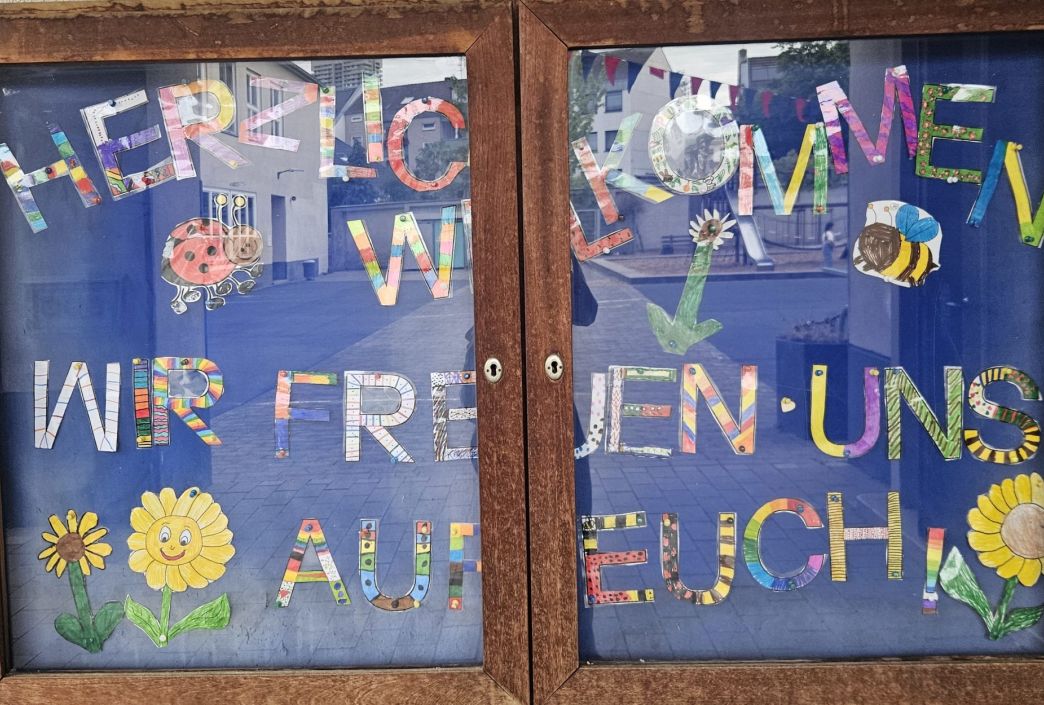 HERZLICH
WILLKOMMEN
WIR FREUEN UNS
AUF EUCH!